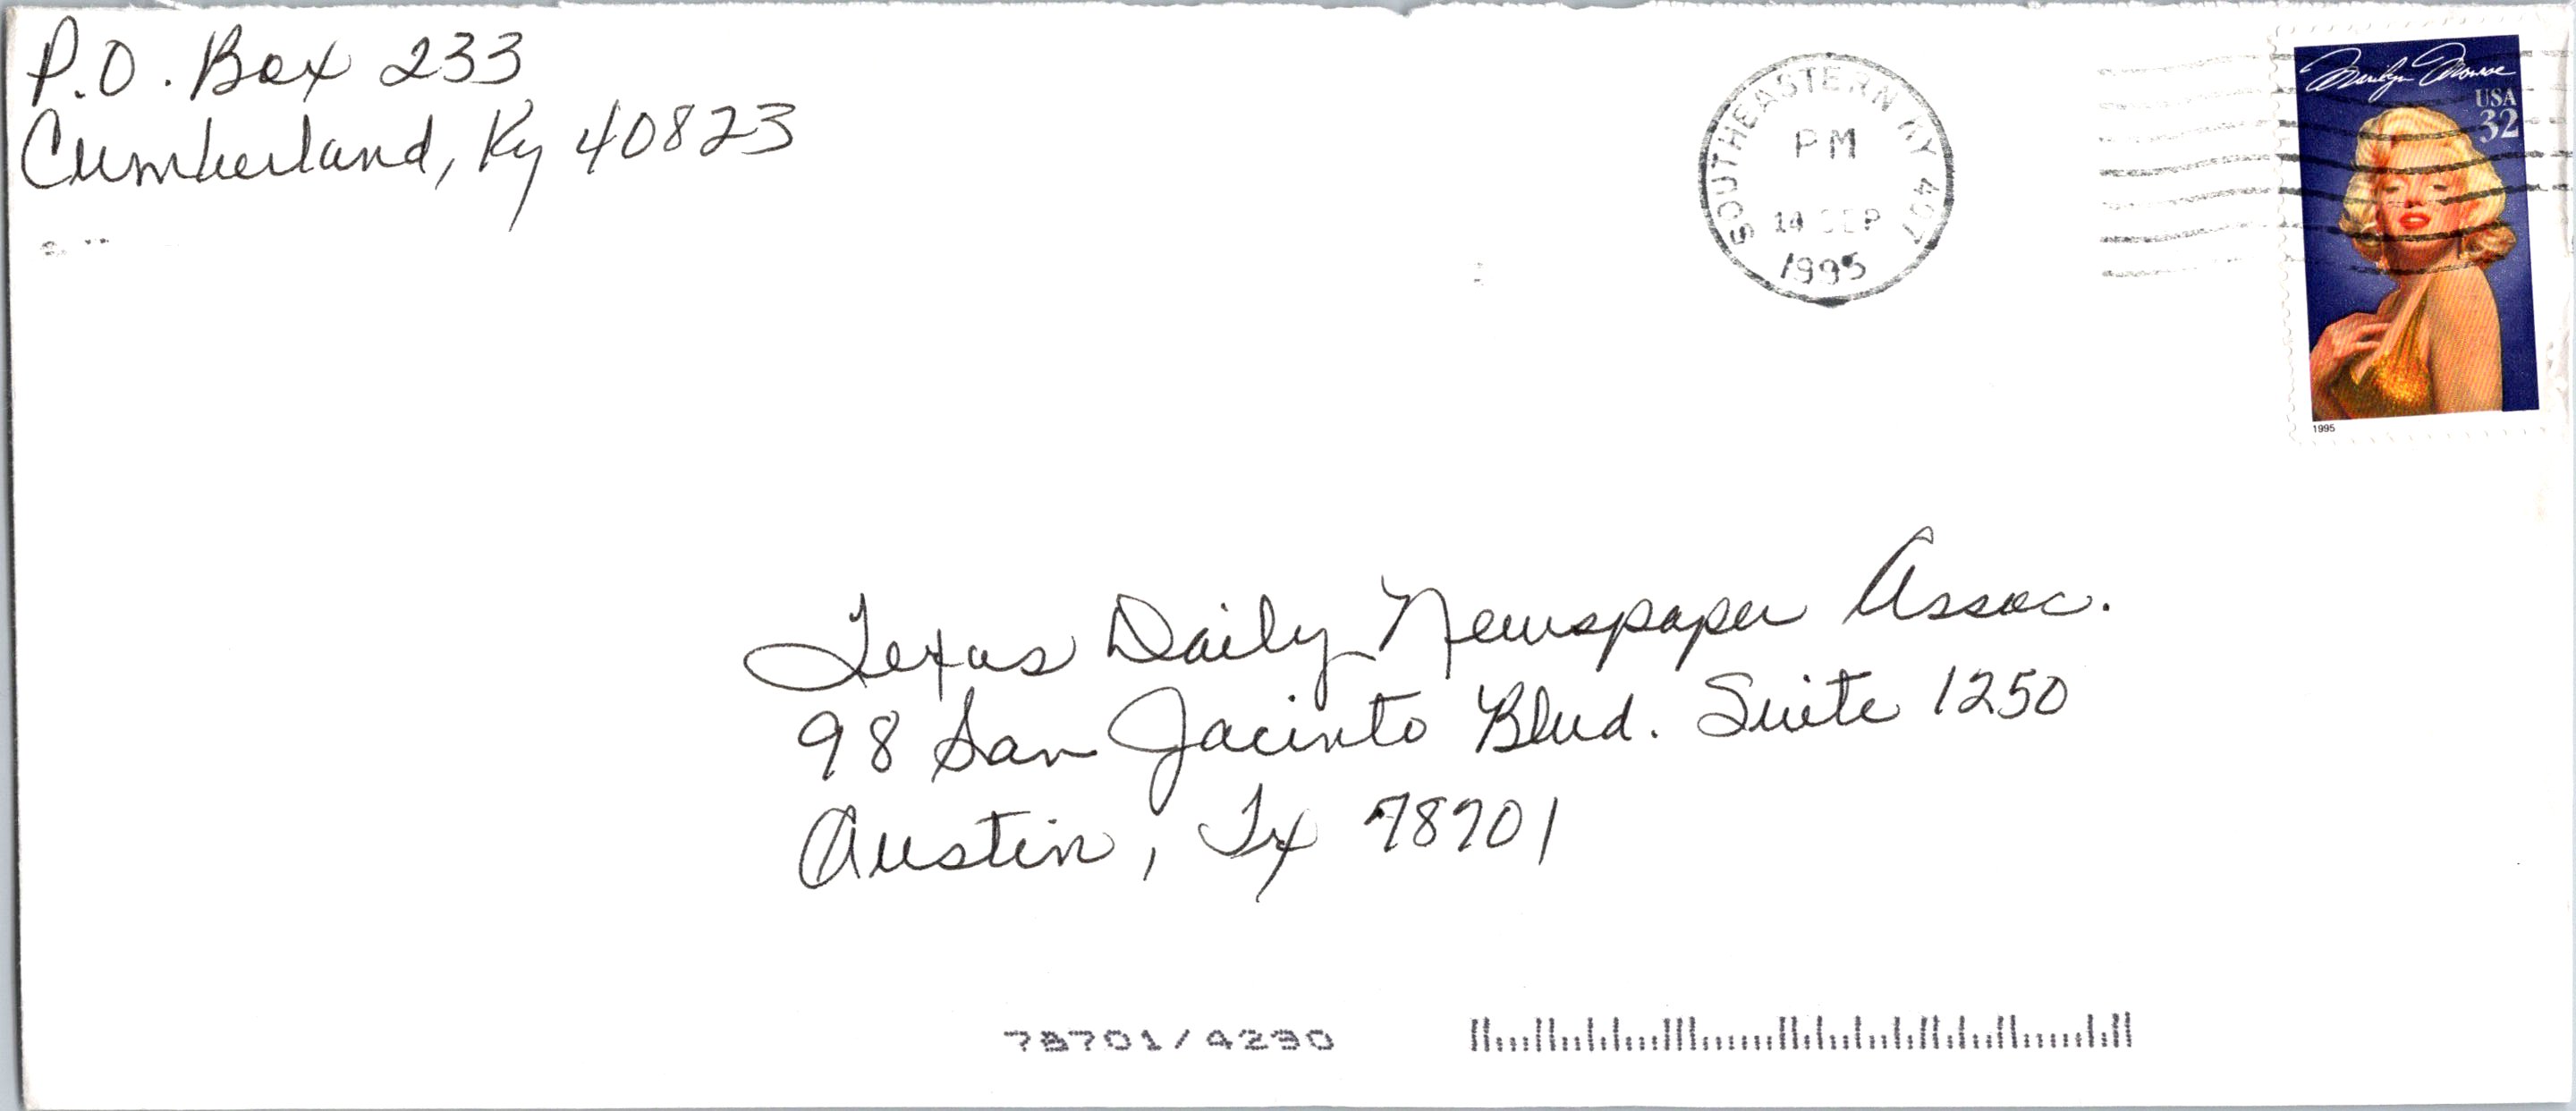 P.O. Box 233
Cumberland, Ky 40823
SOUTHEASTERN KY 407
PM
14 SEP
1995
Marilyn Monroe
USA
32
1995
Texas Daily Newspaper Assoc.
98 San Jacinto Blvd. Suite 1250
Austin, Tx 78701
78701/4290